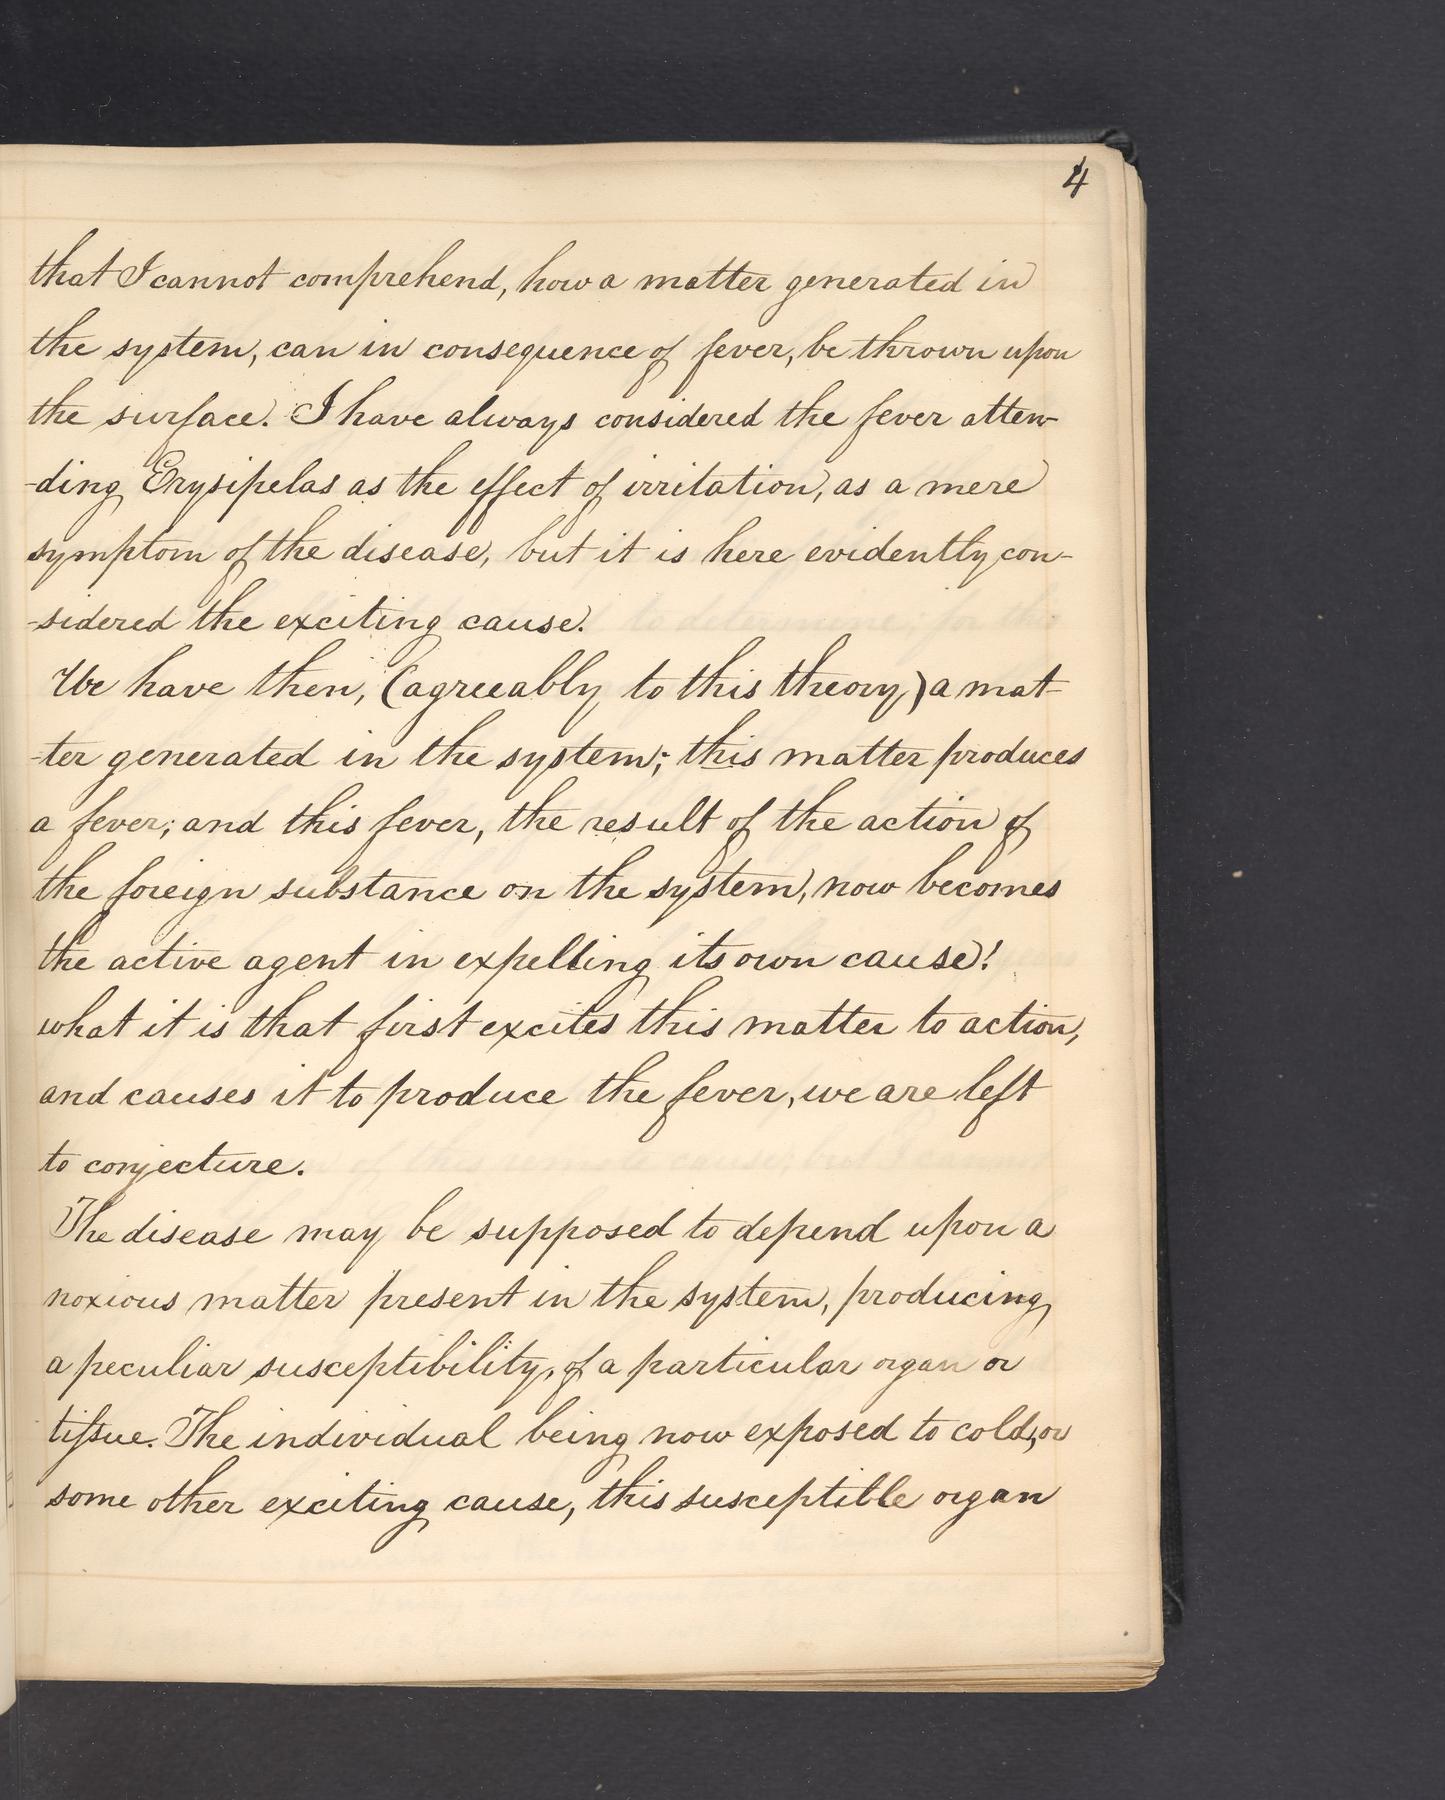 4
that I cannot comprehend, how a matter generated in
the system, can in consequence of fever, be thrown upon
the surface. I have always considered the fever atten-
-ding Erysipelas as the effect of irritation, as a mere
symptom of the disease, but it is here evidently con-
-sidered the exciting cause.
We have then, (agreeably to this theory) a mat-
-ter generated in the system; this matter produces
a fever; and this fever, the result of the action of
the foreign substance on the system, now becomes
the active agent in expelling its own cause!
what it is that first excites this matter to action,
and causes it to produce the fever, we are left
to conjecture.
The disease may be supposed to depend upon a
noxious matter present in the system, producing
a peculiar susceptibility, of a particular organ or
tiſsue. The individual being now exposed to cold, or
some other exciting cause, this susceptible organ